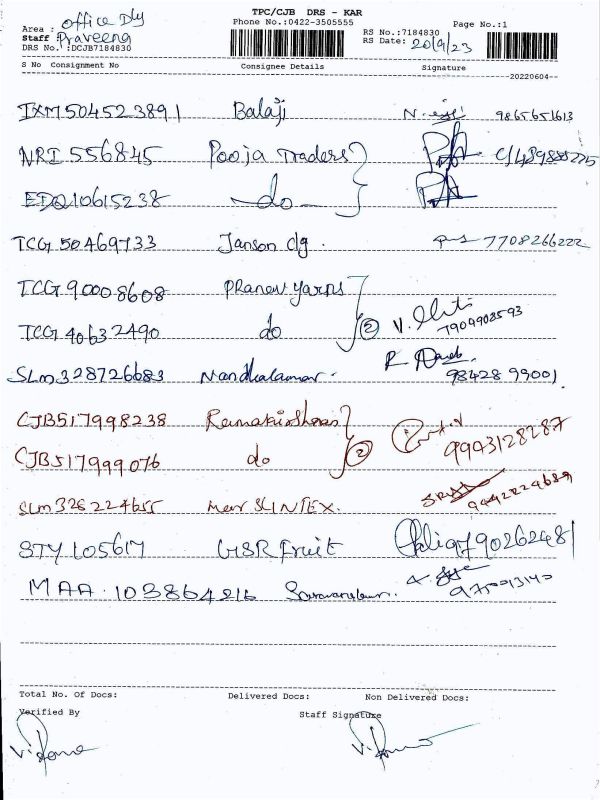 TPC/CJB DRS - KAR
Phone No.:0422-3505555
Page No.:1
Area : office Dly
Staff Praveena
DRS No.:DCJB7184830
RS No.:7184830
RS Date: 20/9/23
S No Consignment No Consignee Details Signature
20220604
IXM504523891 Balaji 9865651613
NRI 556845 Pooja Traders
EDQ10615238 do
TCG 50469733 Janson clg. 7708266222
TCG 90008608 Pranav yarns
TCG 40632490 do 2 7904908593
SLM328726683 98428 99001
CJB517998238
CJB517999076 do 2 9943128287
SLM326224655 New SLINTEX. 9442224689
STY 105617 GSR Fruit 9790262481
MAA 103864216
Total No. Of Docs: Delivered Docs: Non Delivered Docs:
Verified By Staff Signature